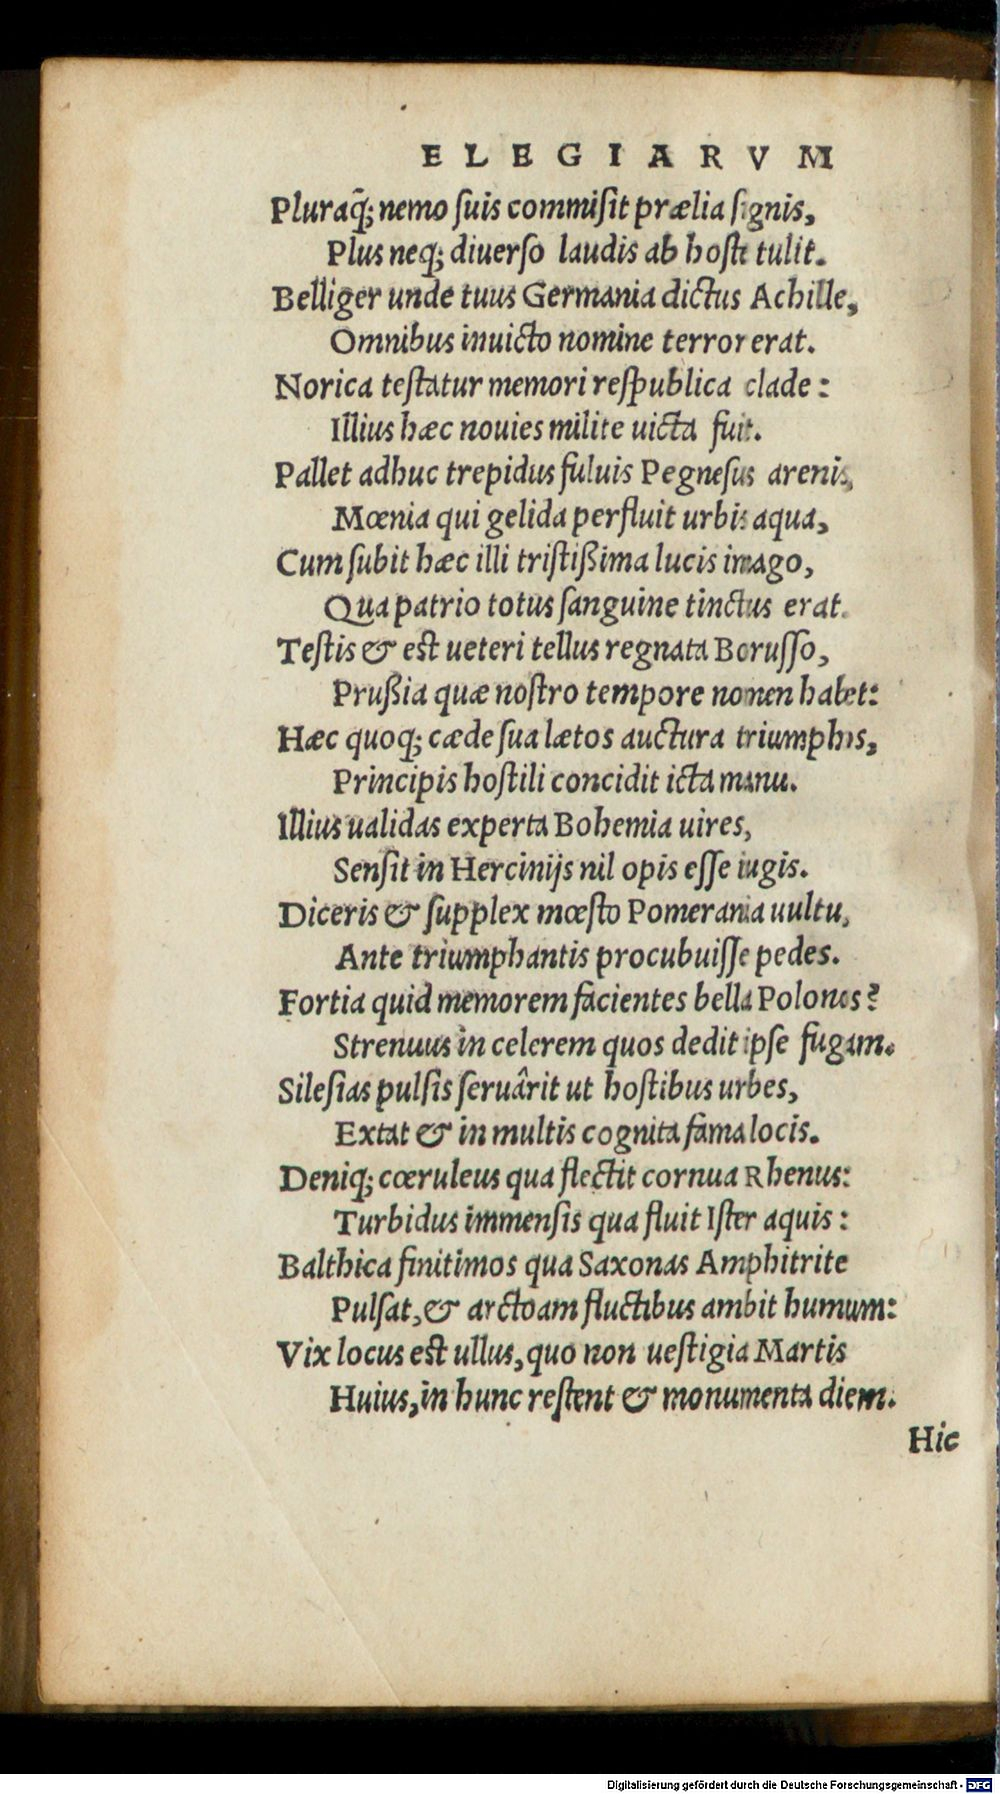 ELEGIARVM
Pluraq̃; nemo ſuis commiſit prælia ſignis,
Plus neq; diuerſo laudis ab hoſte tulit.
Belliger unde tuus Germania dictus Achille,
Omnibus inuicto nomine terror erat.
Norica teſtatur memori reſpublica clade:
Illius hæc nouies milite uicta fuit.
Pallet adhuc trepidus fuluis Pegneſus arenis,
Mœnia qui gelida perfluit urbis aqua,
Cum ſubit hæc illi triſtißima lucis imago,
Qua patrio totus ſanguine tinctus erat.
Teſtis & eſt ueteri tellus regnata Boruſſo,
Prußia quæ noſtro tempore nomen habet:
Hæc quoq; cæde ſua lætos auctura triumphos,
Principis hoſtili concidit icta manu.
Illius ualidas experta Bohemia uires,
Senſit in Hercinijs nil opis eſſe iugis.
Diceris & ſupplex mœſto Pomerania uultu,
Ante triumphantis procubuiſſe pedes.
Fortia quid memorem facientes bella Polonos?
Strenuus in celerem quos dedit ipſe fugam.
Sileſias pulſis ſeruârit ut hoſtibus urbes,
Extat & in multis cognita fama locis.
Deniq; cœruleus qua flectit cornua Rhenus:
Turbidus immenſis qua fluit Iſter aquis:
Balthica finitimos qua Saxonas Amphitrite
Pulſat, & arctoam fluctibus ambit humum:
Vix locus eſt ullus, quo non ueſtigia Martis
Huius, in hunc reſtent & monumenta diem.
Hic
Digitalisierung gefördert durch die Deutsche Forschungsgemeinschaft - DFG